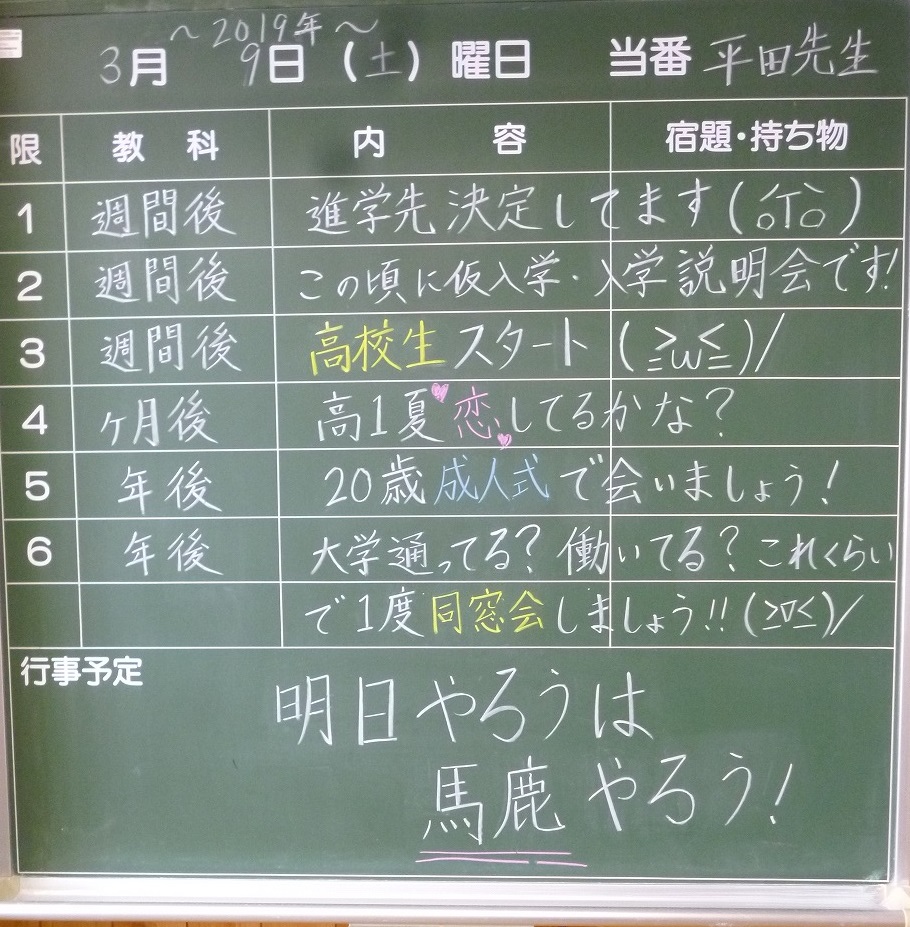 ～2019年～
3月9日（土）曜日 当番 平田先生
限 教科 内容 宿題・持ち物
1 週間後 進学先決定してます(ò_ó)
2 週間後 この頃に仮入学・入学説明会です!
3 週間後 高校生スタート(≧ω≦)/
4 ヶ月後 高1夏恋してるかな?
5 年後 20歳成人式で会いましょう!
6 年後 大学通ってる?働いてる?これくらい
で1度同窓会しましょう!!(≧▽≦)/
行事予定
明日やろうは
馬鹿やろう!